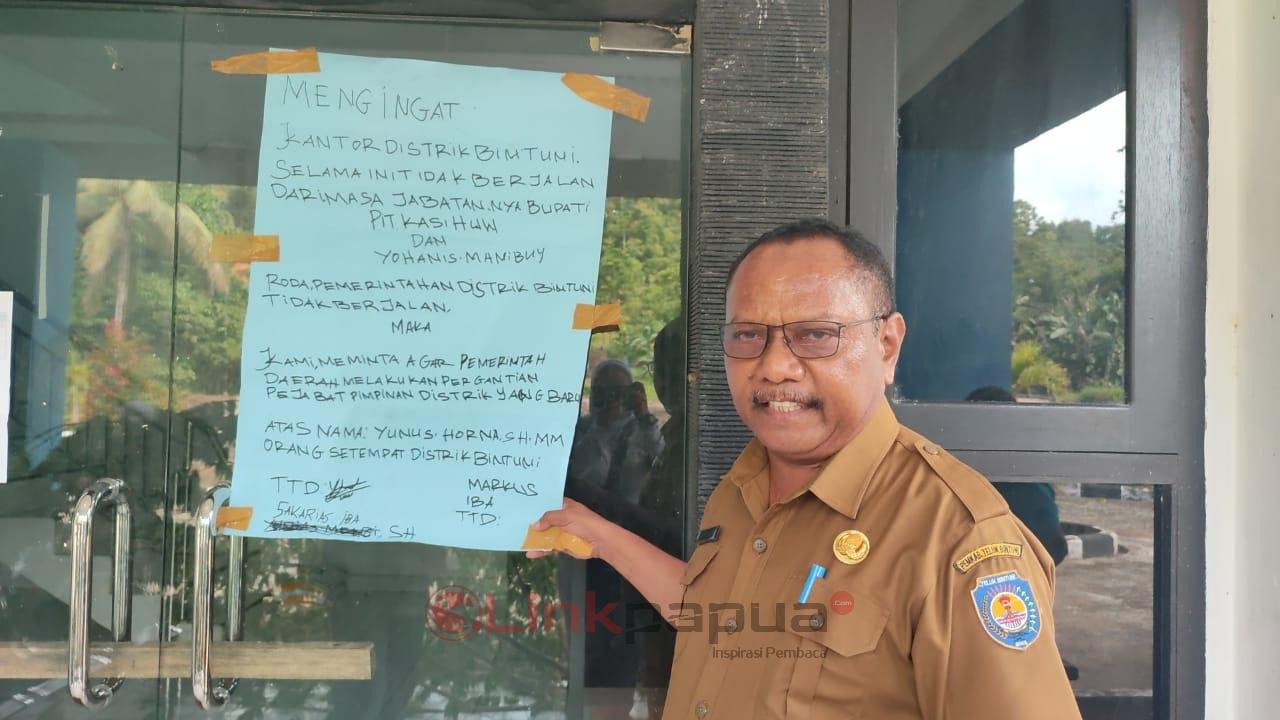 MENGINGAT
KANTOR DISTRIK BINTUNI.
SELAMA INI TIDAK BERJALAN
DARI MASA JABATAN.NYA BUPATI
PIT KASIHUW
DAN
YOHANIS.MANIBUY
RODA,PEMERINTAHAN DISTRIK BINTUNI
TIDAK BERJALAN,
MAKA
KAMI, MEMINTA AGAR PEMERINTAH
DAERAH MELAKUKAN PERGANTIAN
PEJABAT PIMPINAN DISTRIK YANG BARU
ATAS NAMA: YUNUS.HORNA.SH.MM
ORANG SETEMPAT DISTRIK BINTUNI
TTD: MARKUS
SAKARIAS IBA IBA
SH TTD:
PEMKAB.TELUK BINTUNI
TELUK BINTUNI
Linkpapua.Com
Inspirasi Pembaca